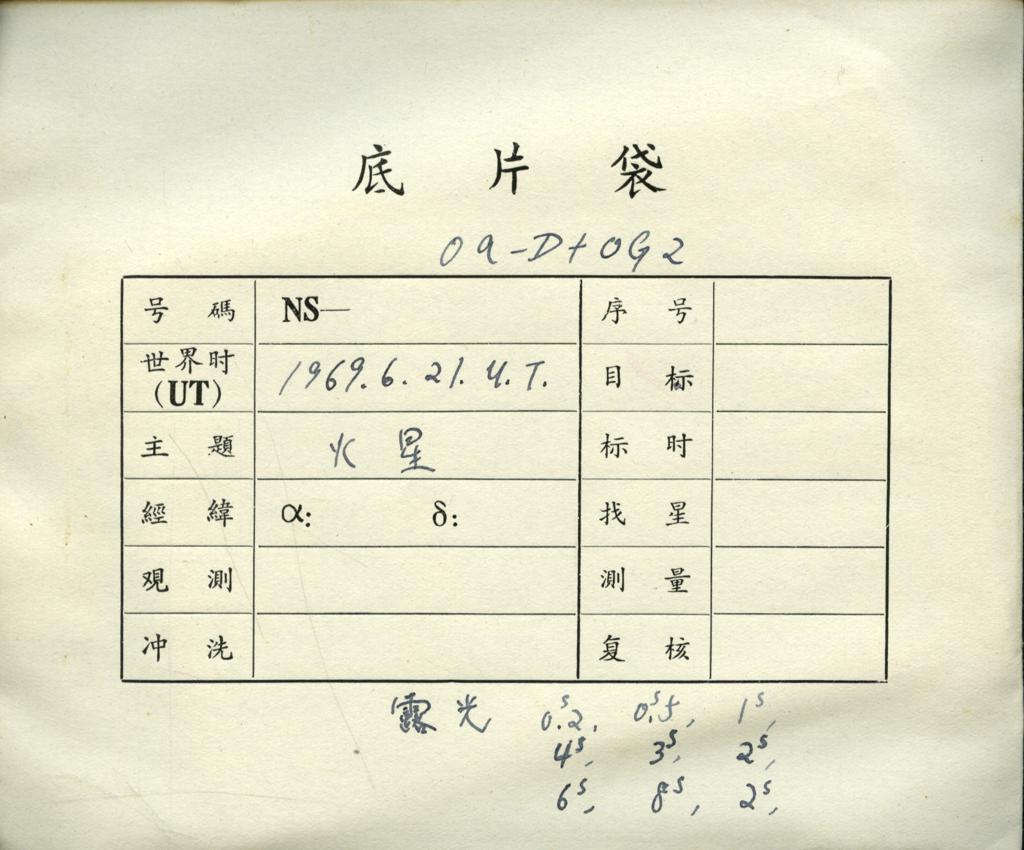 底片袋
0a-D+OG2
号碼 NS— 序号
世界时 (UT) 1969.6.21. U.T. 目标
主題 火星 标时
經緯 α: δ: 找星
观測 測量
冲洗 复核
露光 0.ˢ2, 0.ˢ5, 1ˢ,
4ˢ, 3ˢ, 2ˢ,
6ˢ, 8ˢ, 2ˢ,